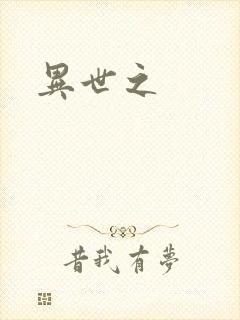 異世之
昔我有夢